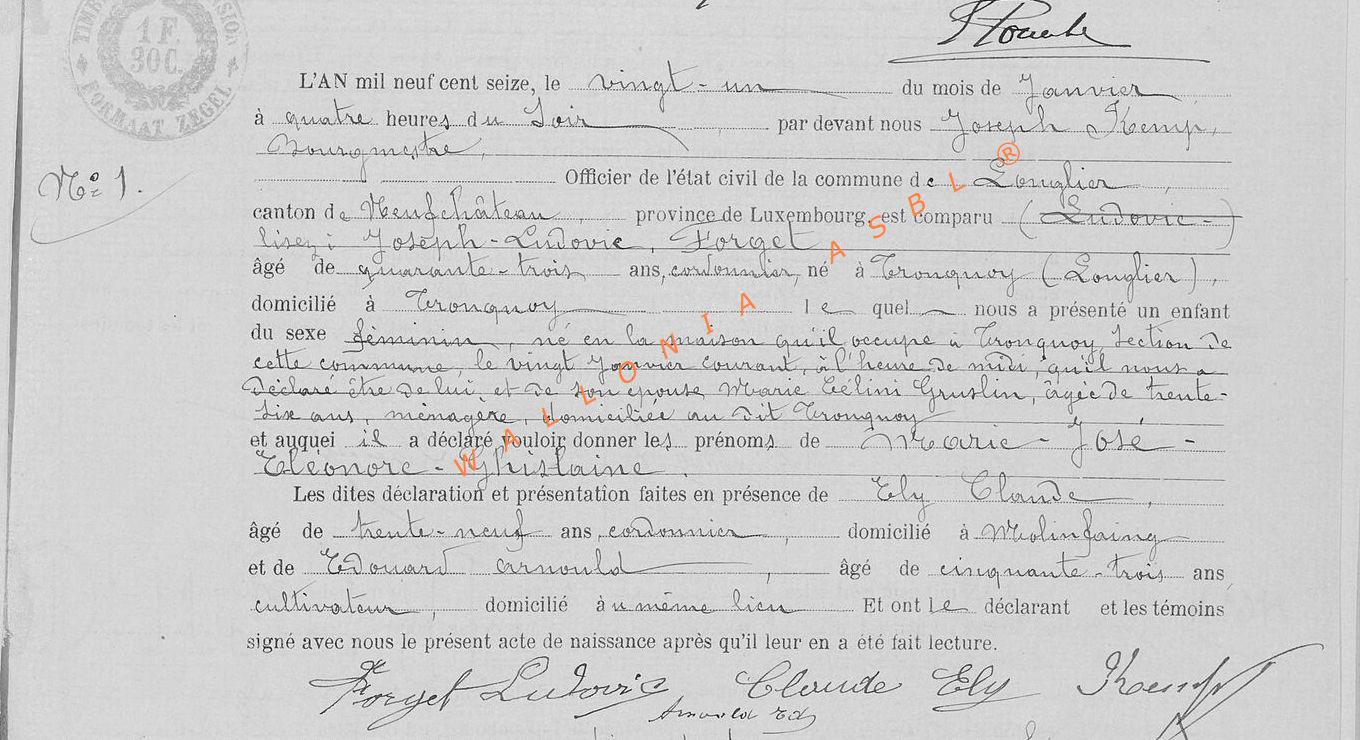 TIMB
1 F.
30C.
FORMAAT ZEGEL
L'AN mil neuf cent seize, le vingt-un du mois de Janvier
à quatre heures du Soir par devant nous Joseph Kemp,
Bourgmestre,
Nº 1.
Officier de l'état civil de la commune de Longlier,
canton de Neufchâteau, province de Luxembourg, est comparu (Ludovic-)
lisez: Joseph-Ludovic, Forget
âgé de quarante-trois ans, cordonnier, né à Tronquoy (Longlier),
domicilié à Tronquoy lequel nous a présenté un enfant
du sexe féminin, né en la maison qu'il occupe à Tronquoy, Section de
cette commune, le vingt Janvier courant, à l'heure de midi, qu'il nous a
déclaré être de lui, et de son épouse Marie Célini Gruslin, âgée de trente-
six ans, ménagère, domiciliée au dit Tronquoy
et auquel il a déclaré vouloir donner les prénoms de Marie-José-
Eléonore-Ghislaine.
Les dites déclaration et présentation faites en présence de Ely Claude,
âgé de trente-neuf ans, cordonnier, domicilié à Molinfaing
et de Edouard Arnould, âgé de cinquante-trois ans,
cultivateur, domicilié au même lieu Et ont le déclarant et les témoins
signé avec nous le présent acte de naissance après qu'il leur en a été fait lecture.
Forget Ludovic, Claude Ely Kemp
Arnould Ed
WALLONIA ASBL ®